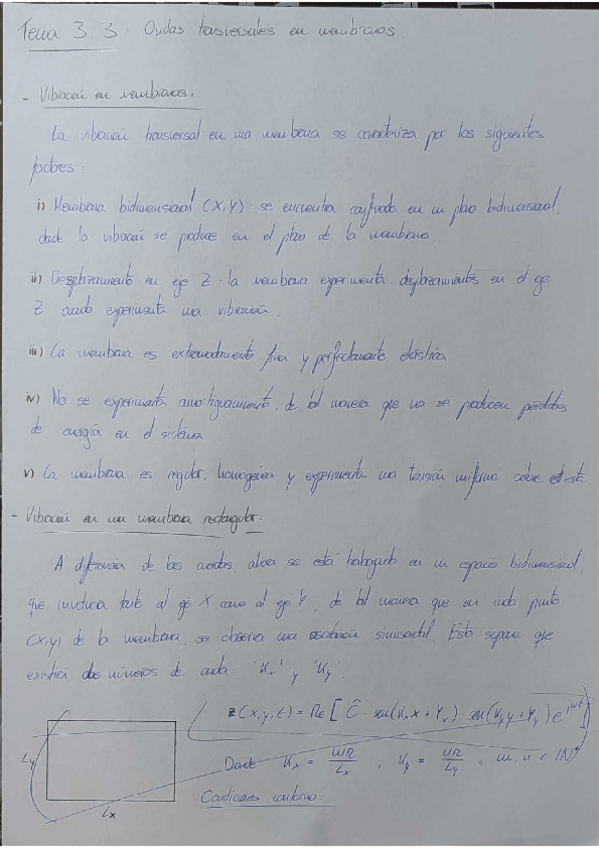 Tema 3.3: Ondas transversales en membranas.
- Vibración en membranas.
La vibración transversal en una membrana se caracteriza por los siguientes
factores:
i) Membrana bidimensional (X,Y): se encuentra confinada en un plano bidimensional,
donde la vibración se produce en el plano de la membrana.
ii) Desplazamiento en eje Z: la membrana experimenta desplazamientos en el eje
Z cuando experimenta una vibración.
iii) La membrana es extremadamente fina y perfectamente elástica
iv) No se experimenta amortiguamiento, de tal manera que no se producen pérdidas
de energía en el sistema
v) La membrana es regular, homogénea y experimenta una tensión uniforme sobre
- Vibración en una membrana rectangular:
A diferencia de las cuerdas, ahora se está trabajando en un espacio bidimensional,
que involucra tanto al eje X como al eje Y, de tal manera que en cada punto
(x,y) de la membrana, se observa una oscilación sinusoidal. Esto supone que
existirán dos números de onda: 'Kx' y 'Ky'.
z(x,y,t) = Re[Ĉ · sen(Kx x + φx) · sen(Ky y + φy) e^jωt]
Ly
Donde Kx = mπ/Lx , Ky = nπ/Ly , m, n ∈ |N⁺
Lx
Condiciones contorno: